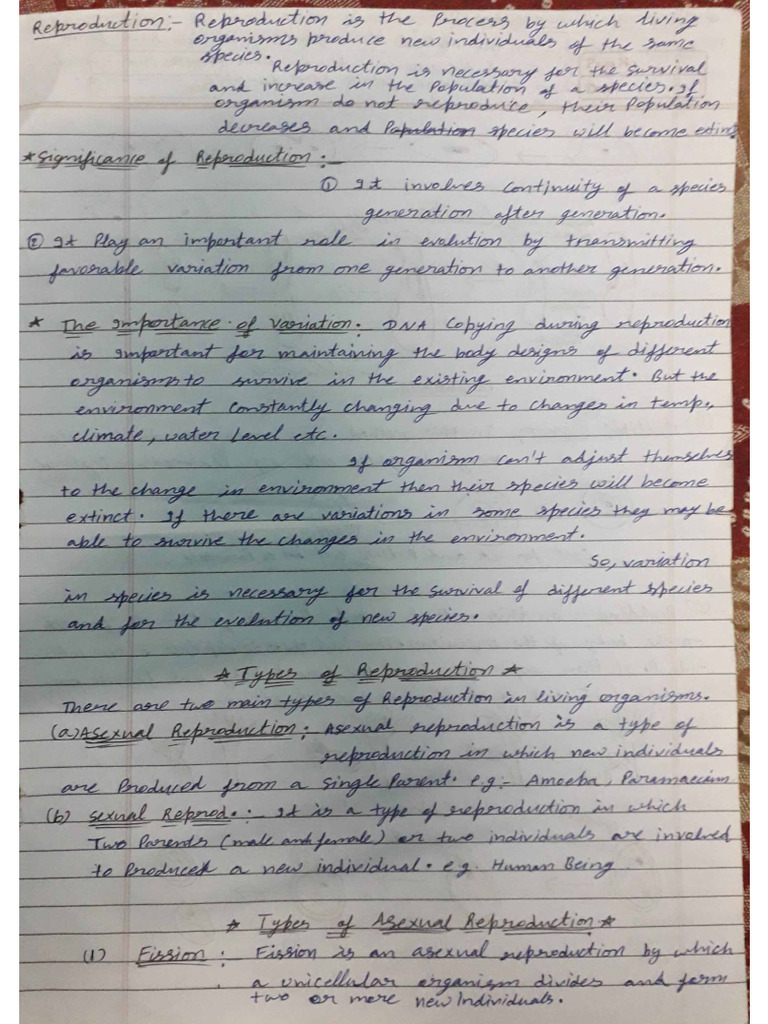 Reproduction :- Reproduction is the Process by which living
organisms produce new individuals of the same
species.
Reproduction is necessary for the survival
and increase in the Population of a species. If
organism do not reproduce, their Population
decreases and Population species will become extinct
* Significance of Reproduction :-
① It involves Continuity of a species
generation after generation.
② It Play an important role in evolution by transmitting
favorable variation from one generation to another generation.
* The Importance of Variation : DNA Copying during reproduction
is important for maintaining the body designs of different
organisms to survive in the existing environment. But the
environment constantly changing due to changes in temp.,
climate, water Level etc.
If organism can't adjust themselves
to the change in environment then their species will become
extinct. If there are variations in some species they may be
able to survive the changes in the environment.
So, variation
in species is necessary for the survival of different species
and for the evolution of new species.
* Types of Reproduction *
There are two main types of Reproduction in living organisms.
(a) Asexual Reproduction : Asexual reproduction is a type of
reproduction in which new individuals
are Produced from a Single Parent. e.g :- Amoeba, Paramaecium
(b) Sexual Reprod. :- It is a type of reproduction in which
Two Parents (male and female) or two individuals are involved
to Produced a new individual. e.g. Human Being
* Types of Asexual Reproduction *
(1) Fission : Fission is an asexual reproduction by which
a unicellular organism divides and form
two or more new Individuals.